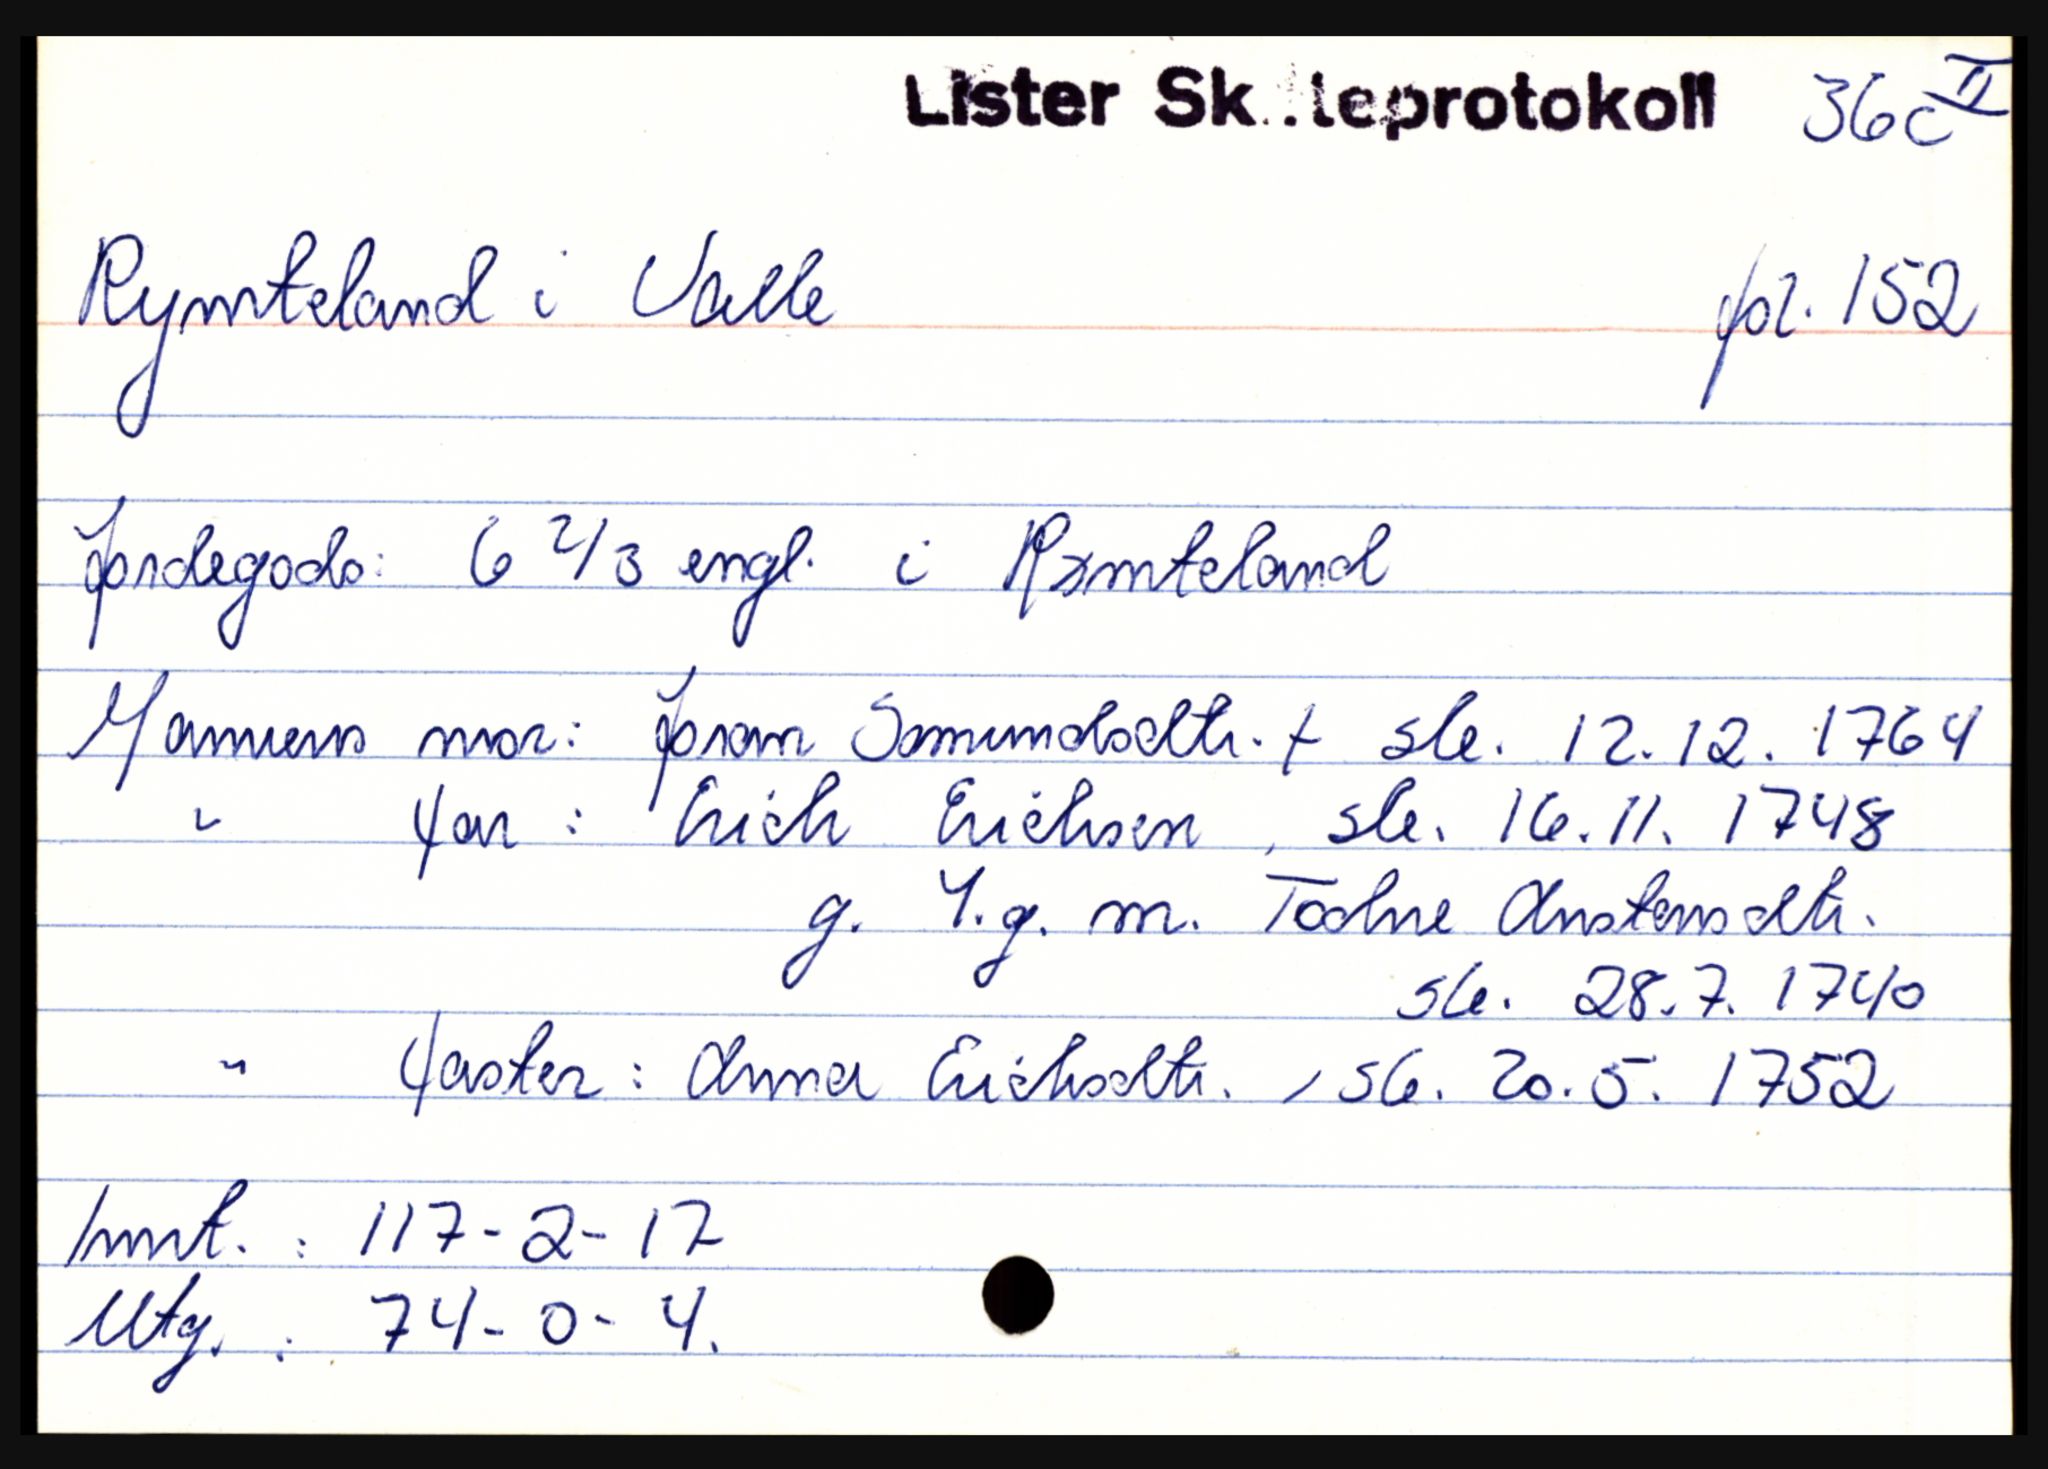 Lister Sk..leprotokoll 36c II
Rymteland i Valle fol. 152
Jordegods: 6 2/3 engl. i Rømteland
Mannens mor: Joran Samundsdtr. + sle. 12.12. 1764
" far: Erich Erichsen, sle. 16.11. 1748
g. 4.g. m. Todne Anstensdtr.
sle. 28.7. 1740
" faster: Anna Erichsdtr., sle. 20.5. 1752
Innt.: 117-2-12
Utg.: 74-0-4.